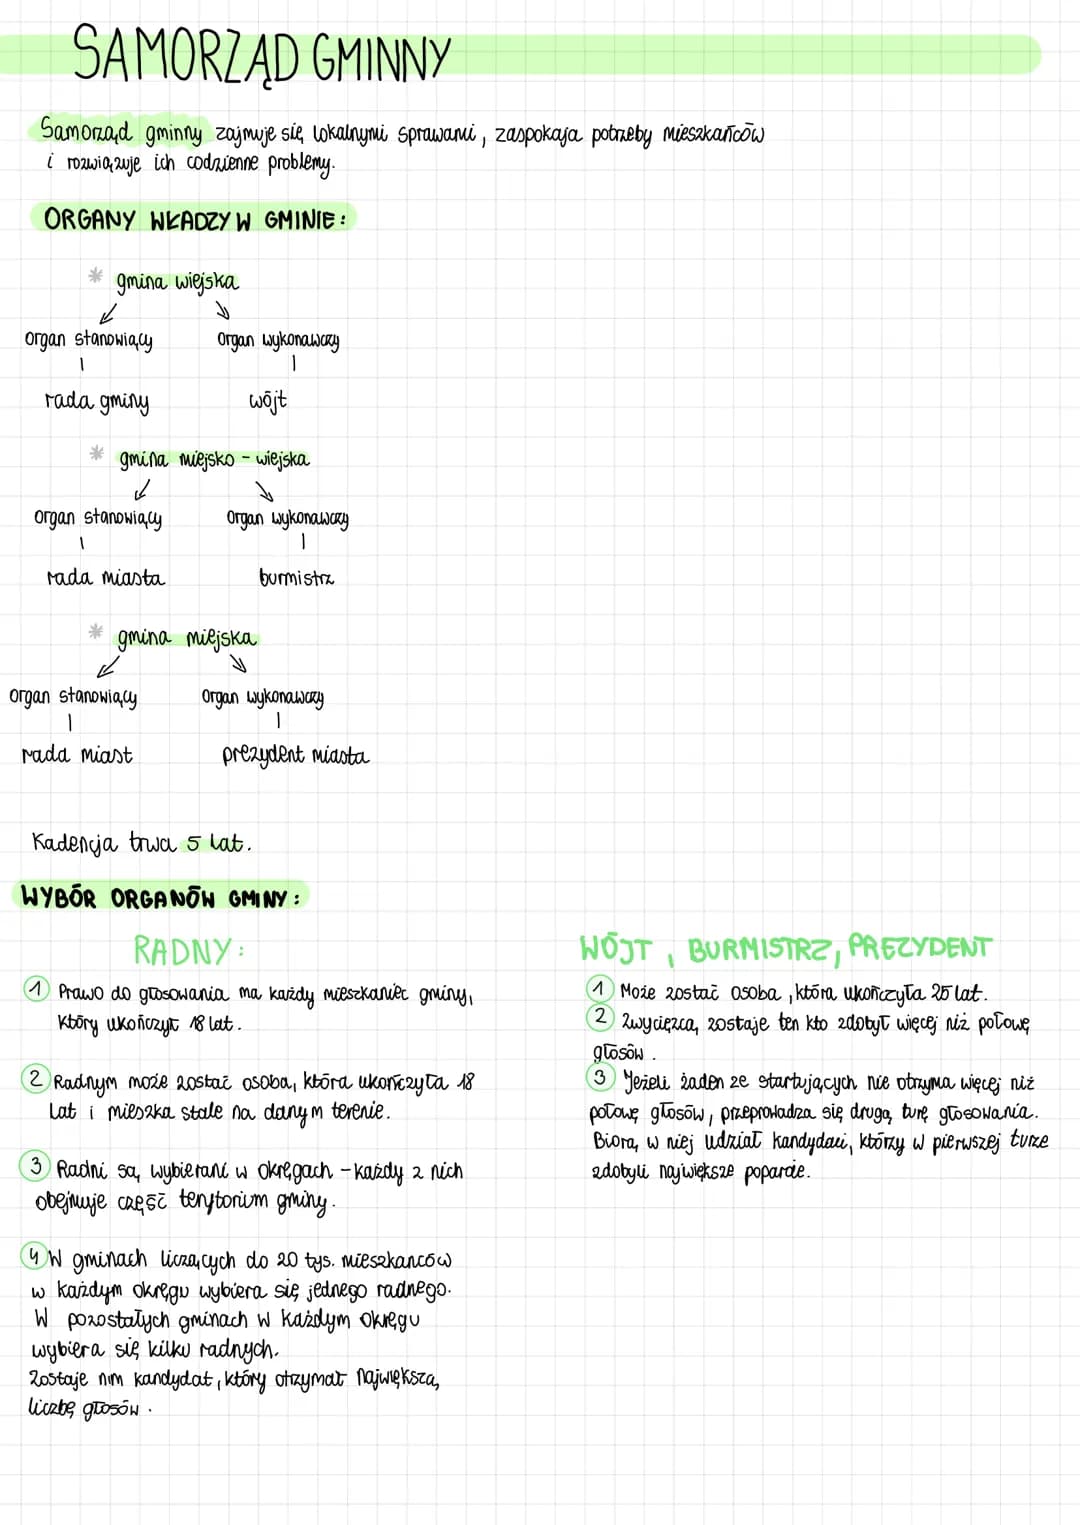 SAMORZĄD GMINNY
Samorząd gminny zajmuje się lokalnymi sprawami, zaspokaja potrzeby mieszkańców
i rozwiązuje ich codzienne problemy.
ORGANY WŁADZY W GMINIE:
* gmina wiejska
organ stanowiący organ wykonawczy
rada gminy wójt
* gmina miejsko - wiejska
organ stanowiący organ wykonawczy
rada miasta burmistrz
* gmina miejska
organ stanowiący organ wykonawczy
rada miast prezydent miasta
Kadencja trwa 5 lat.
WYBÓR ORGANÓW GMINY:
RADNY:
1 Prawo do głosowania ma każdy mieszkaniec gminy,
który ukończył 18 lat.
2 Radnym może zostać osoba, która ukończyła 18
lat i mieszka stale na danym terenie.
3 Radni są wybierani w okręgach - każdy z nich
obejmuje część terytorium gminy.
4 W gminach liczących do 20 tys. mieszkanców
w każdym okręgu wybiera się jednego radnego.
W pozostałych gminach w każdym okręgu
wybiera się kilku radnych.
Zostaje nim kandydat, który otrzymał największą
liczbę głosów.
WÓJT, BURMISTRZ, PREZYDENT
1 Może zostać osoba, która ukończyła 25 lat.
2 Zwycięzcą zostaje ten kto zdobył więcej niż połowę
głosów.
3 Jeżeli żaden ze startujących nie otrzyma więcej niż
połowę głosów, przeprowadza się drugą turę głosowania.
Biorą w niej udział kandydaci, którzy w pierwszej turze
zdobyli największe poparcie.